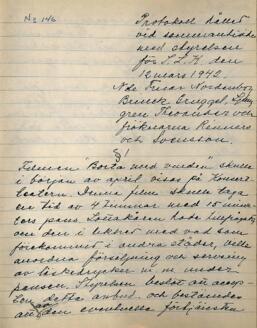 No 146
Protokoll hållet
vid sammanträde
med styrelsen
för S.L.K. den
12 mars 1942.
Nda Fruar Nordenborg
gren Theorander och
fröknarna Renners
och Svensson.
§1
Filmen "Borta med vinden" skulle
i början av april visas på Konsert-
teatern. Denna film skulle taga
en tid av 4 timmar med 15 minu-
ters paus.
om den i likhet med vad som
förekommit i andra städer, ville
anordna försäljning och servering
av läskedrycker m.m. under
pausen. Styrelsen beslöt att accep-
tera detta anbud och bestämdes
att den eventuella förtjänsten